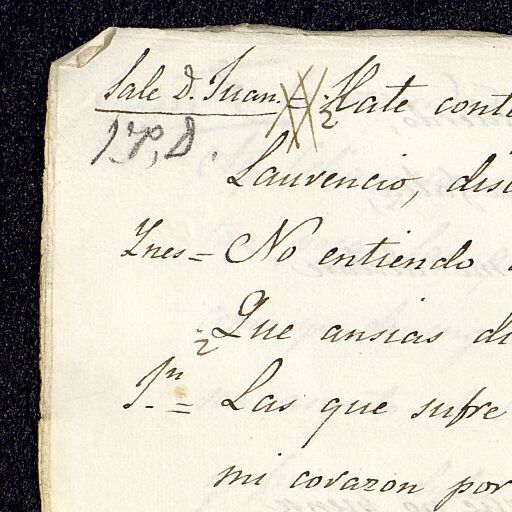 Sale D. Juan. = ¿Hate conta
1º, D.
Laurencio, dis
Ynes = No entiendo
¿Que ansias di
Jn. = Las que sufre
mi corazon por